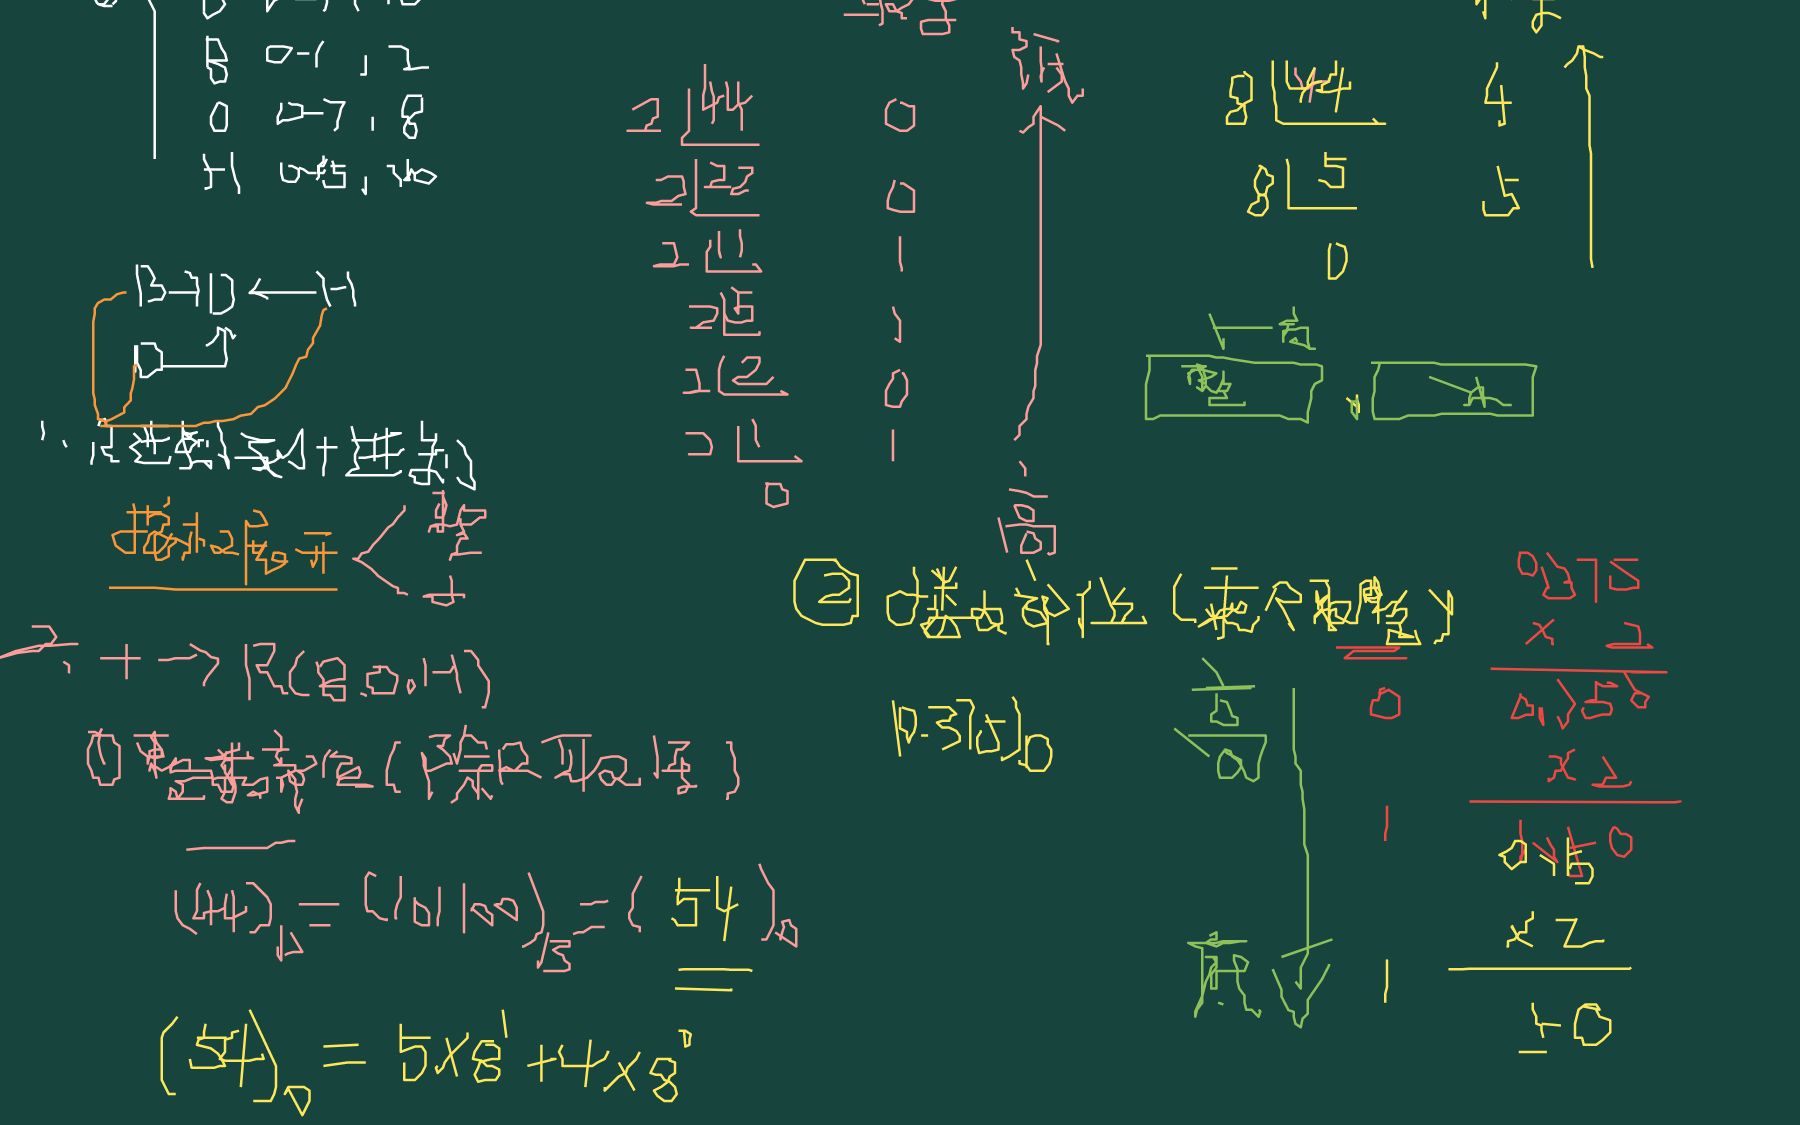 B 0-1 , 2
O 0-7 , 8
H 0-15 , 16
B→D ← H
O
1. R进制→十进制
按权展开 < 整
小
2. 十 → R(B.O.H)
① 整数部位(除R取余)
(44)D = (101100)B = ( 54 )O
(54)O = 5×8¹+4×8⁰
低
2 44 0
2 22 0
2 11 1
2 5 1
2 2 0
2 1 1
0
高
8 44 4
8 5 5
0
← 高
整 . 小
② 小数部位(乘R取整)
(0.375)D
小
高
低
0
1
1
0.375
× 2
0.750
× 2
1.50
0.5
× 2
1.0